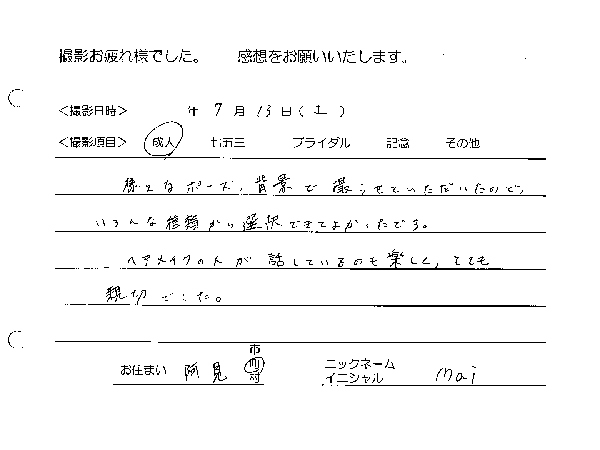 撮影お疲れ様でした。 感想をお願いいたします。
<撮影日時> 年 7 月 13 日 ( 土 )
<撮影項目> 成人 七五三 ブライダル 記念 その他
様々なポーズ、背景で撮らせていただいたので、
いろんな種類から選択できてよかったです。
ヘアメイクの人が話しているのも楽しく、とても
親切でした。
お住まい 阿見 市 町 村 ニックネーム イニシャル mai